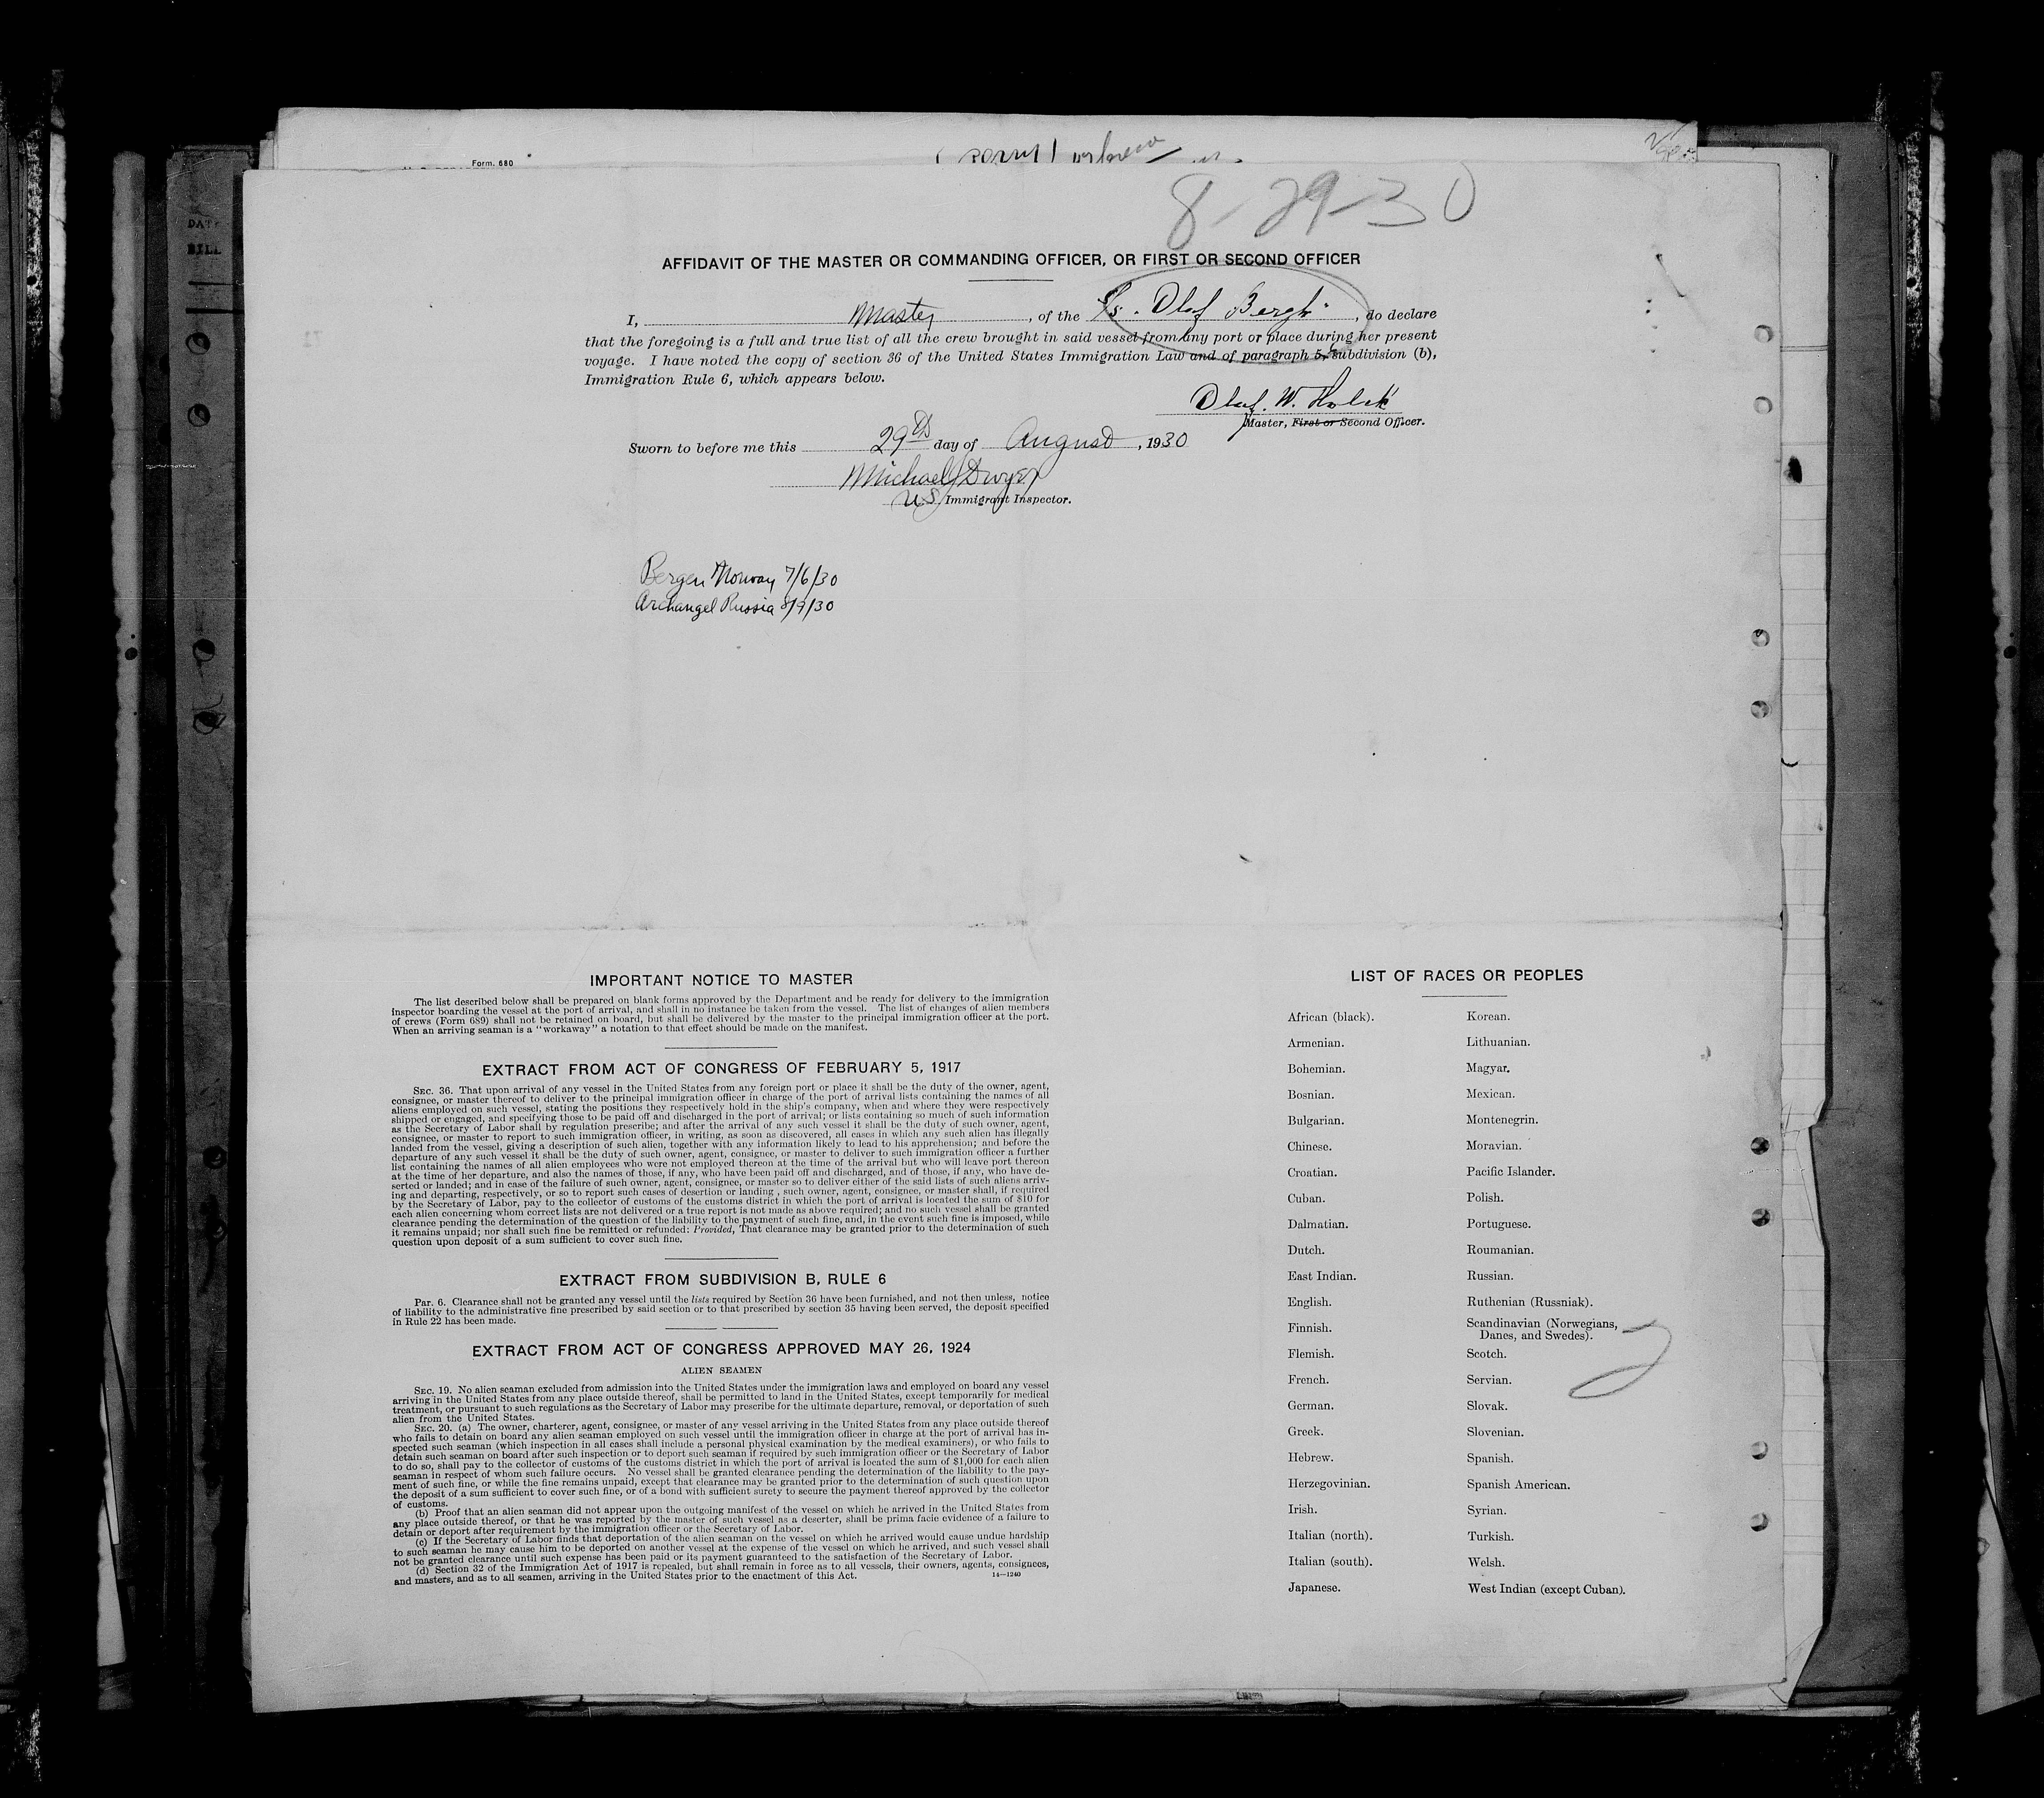 Form. 680
DATE
BILL
8-29-30
AFFIDAVIT OF THE MASTER OR COMMANDING OFFICER, OR FIRST OR SECOND OFFICER
I, Master, of the S/s. Olaf Bergh, do declare
that the foregoing is a full and true list of all the crew brought in said vessel from any port or place during her present
voyage. I have noted the copy of section 36 of the United States Immigration Law and of paragraph 5, 6 subdivision (b),
Immigration Rule 6, which appears below.
Olaf. W. Holck
Master, First or Second Officer.
Sworn to before me this 29th day of August, 1930
Michael J Dwyer
US Immigrant Inspector.
Bergen Norway 7/6/30
Archangel Russia 8/9/30
IMPORTANT NOTICE TO MASTER
The list described below shall be prepared on blank forms approved by the Department and be ready for delivery to the immigration
inspector boarding the vessel at the port of arrival, and shall in no instance be taken from the vessel. The list of changes of alien members
of crews (Form 689) shall not be retained on board, but shall be delivered by the master to the principal immigration officer at the port.
When an arriving seaman is a "workaway" a notation to that effect should be made on the manifest.
EXTRACT FROM ACT OF CONGRESS OF FEBRUARY 5, 1917
SEC. 36. That upon arrival of any vessel in the United States from any foreign port or place it shall be the duty of the owner, agent,
consignee, or master thereof to deliver to the principal immigration officer in charge of the port of arrival lists containing the names of all
aliens employed on such vessel, stating the positions they respectively hold in the ship's company, when and where they were respectively
shipped or engaged, and specifying those to be paid off and discharged in the port of arrival; or lists containing so much of such information
as the Secretary of Labor shall by regulation prescribe; and after the arrival of any such vessel it shall be the duty of such owner, agent,
consignee, or master to report to such immigration officer, in writing, as soon as discovered, all cases in which any such alien has illegally
landed from the vessel, giving a description of such alien, together with any information likely to lead to his apprehension; and before the
departure of any such vessel it shall be the duty of such owner, agent, consignee, or master to deliver to such immigration officer a further
list containing the names of all alien employees who were not employed thereon at the time of the arrival but who will leave port thereon
at the time of her departure, and also the names of those, if any, who have been paid off and discharged, and of those, if any, who have de-
serted or landed; and in case of the failure of such owner, agent, consignee, or master so to deliver either of the said lists of such aliens arriv-
ing and departing, respectively, or so to report such cases of desertion or landing , such owner, agent, consignee, or master shall, if required
by the Secretary of Labor, pay to the collector of customs of the customs district in which the port of arrival is located the sum of $10 for
each alien concerning whom correct lists are not delivered or a true report is not made as above required; and no such vessel shall be granted
clearance pending the determination of the question of the liability to the payment of such fine, and, in the event such fine is imposed, while
it remains unpaid; nor shall such fine be remitted or refunded: Provided, That clearance may be granted prior to the determination of such
question upon deposit of a sum sufficient to cover such fine.
EXTRACT FROM SUBDIVISION B, RULE 6
Par. 6. Clearance shall not be granted any vessel until the lists required by Section 36 have been furnished, and not then unless, notice
of liability to the administrative fine prescribed by said section or to that prescribed by section 35 having been served, the deposit specified
in Rule 22 has been made.
EXTRACT FROM ACT OF CONGRESS APPROVED MAY 26, 1924
ALIEN SEAMEN
SEC. 19. No alien seaman excluded from admission into the United States under the immigration laws and employed on board any vessel
arriving in the United States from any place outside thereof, shall be permitted to land in the United States, except temporarily for medical
treatment, or pursuant to such regulations as the Secretary of Labor may prescribe for the ultimate departure, removal, or deportation of such
alien from the United States.
SEC. 20. (a) The owner, charterer, agent, consignee, or master of any vessel arriving in the United States from any place outside thereof
who fails to detain on board any alien seaman employed on such vessel until the immigration officer in charge at the port of arrival has in-
spected such seaman (which inspection in all cases shall include a personal physical examination by the medical examiners), or who fails to
detain such seaman on board after such inspection or to deport such seaman if required by such immigration officer or the Secretary of Labor
to do so, shall pay to the collector of customs of the customs district in which the port of arrival is located the sum of $1,000 for each alien
seaman in respect of whom such failure occurs. No vessel shall be granted clearance pending the determination of the liability to the pay-
ment of such fine, or while the fine remains unpaid, except that clearance may be granted prior to the determination of such question upon
the deposit of a sum sufficient to cover such fine, or of a bond with sufficient surety to secure the payment thereof approved by the collector
of customs.
(b) Proof that an alien seaman did not appear upon the outgoing manifest of the vessel on which he arrived in the United States from
any place outside thereof, or that he was reported by the master of such vessel as a deserter, shall be prima facie evidence of a failure to
detain or deport after requirement by the immigration officer or the Secretary of Labor.
(c) If the Secretary of Labor finds that deportation of the alien seaman on the vessel on which he arrived would cause undue hardship
to such seaman he may cause him to be deported on another vessel at the expense of the vessel on which he arrived, and such vessel shall
not be granted clearance until such expense has been paid or its payment guaranteed to the satisfaction of the Secretary of Labor.
(d) Section 32 of the Immigration Act of 1917 is repealed, but shall remain in force as to all vessels, their owners, agents, consignees,
and masters, and as to all seamen, arriving in the United States prior to the enactment of this Act.
14—1240
LIST OF RACES OR PEOPLES
African (black).
Armenian.
Bohemian.
Bosnian.
Bulgarian.
Chinese.
Croatian.
Cuban.
Dalmatian.
Dutch.
East Indian.
English.
Finnish.
Flemish.
French.
German.
Greek.
Hebrew.
Herzegovinian.
Irish.
Italian (north).
Italian (south).
Japanese.
Korean.
Lithuanian.
Magyar.
Mexican.
Montenegrin.
Moravian.
Pacific Islander.
Polish.
Portuguese.
Roumanian.
Russian.
Ruthenian (Russniak).
Scandinavian (Norwegians,
Danes, and Swedes).
Scotch.
Servian.
Slovak.
Slovenian.
Spanish.
Spanish American.
Syrian.
Turkish.
Welsh.
West Indian (except Cuban).